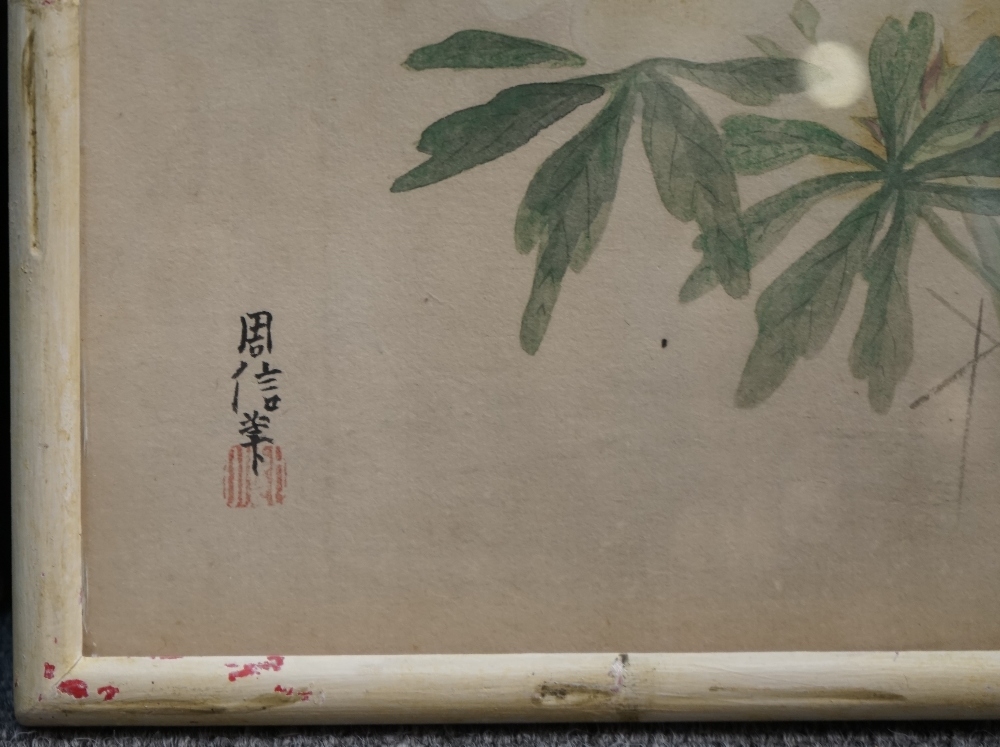 周信筆